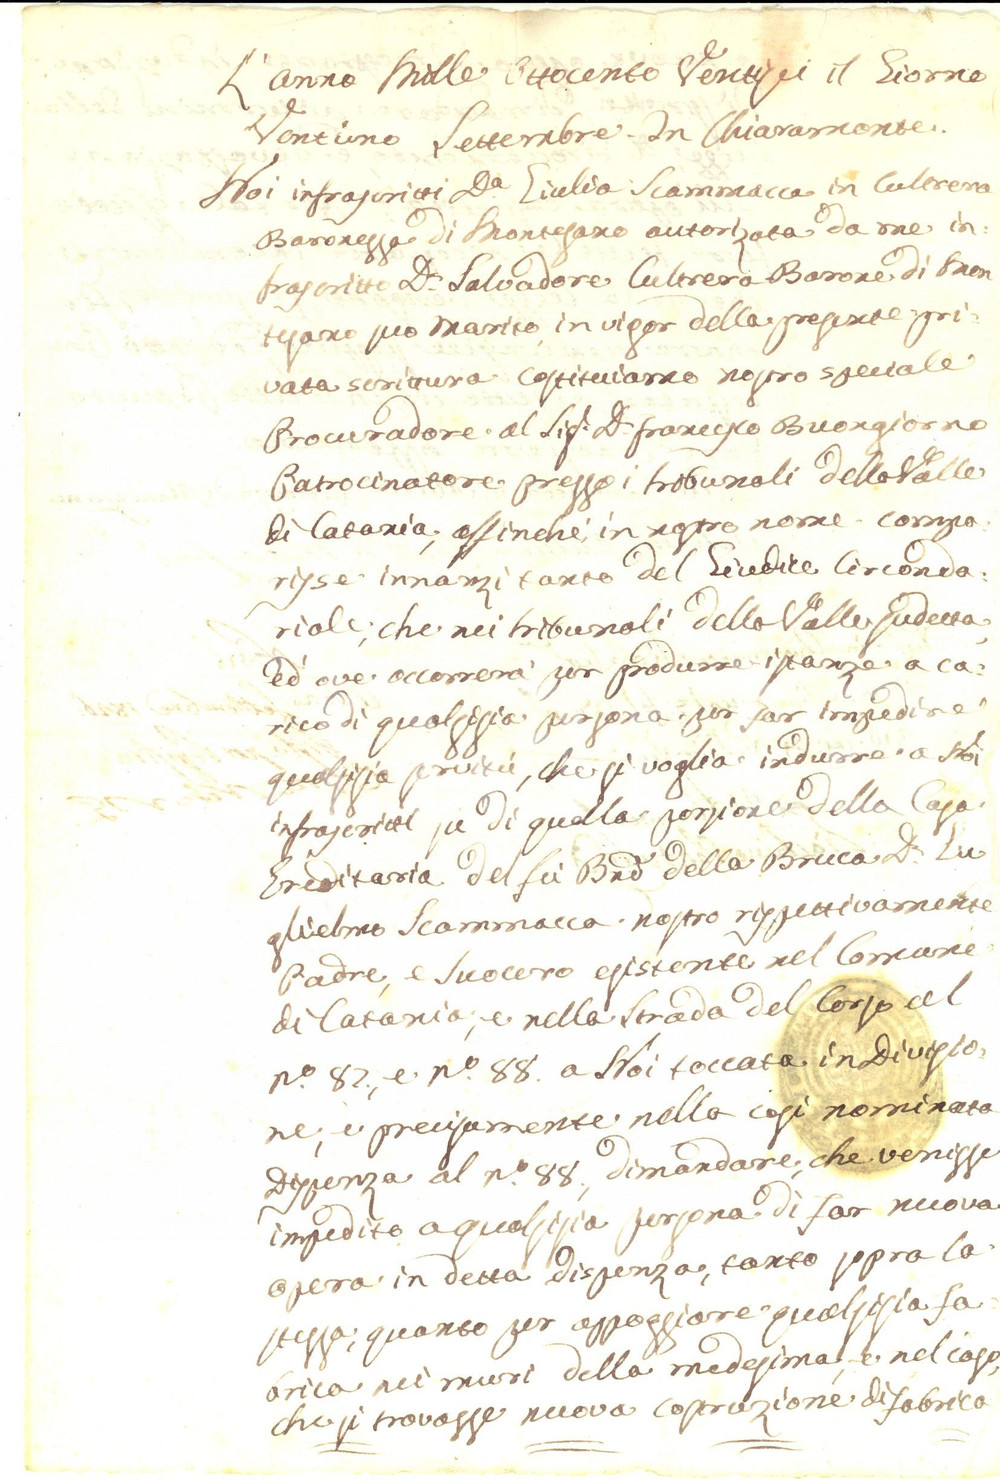 L'anno Mille Ottocento Ventisei il Giorno
Ventuno Settembre. In Chiaramonte.
Noi infrascritti Dª Giulia Scammacca in Cultrera
Baronessa di Montesano autorizzata da me in-
frascritto Dn Salvadore Cultrera Barone di Mon
tesano suo Marito, in vigor della presente pri-
vata scrittura costituiamo nostro speciale
Procuradore al Sigr Dn Francesco Buongiorno
Patrocinatore presso i tribunali della Valle
di Catania, affinchè in nostro nome compa-
risse innanzi tanto del Giudice Circonda-
riale, che nei tribunali della Valle sudetta,
ed ove occorrerà per produrre istanze a ca-
rico di qualsisia persona per far impedire
qualsisia servitù, che si voglia indurre a Noi
infrascritti su di quella porzione della Casa
Ereditaria del fù Bne della Bruca Dn Gu
glielmo Scammacca nostro rispettivamente
Padre, e Suocero esistente nel Comune
di Catania, e nella Strada del Corso al
nº 87., e nº 88. a Noi toccata in Divisio-
ne, e precisamente nella così nominata
Dispenza al nº 88., dimandare, che venisse
impedito a qualsisia persona di far nuova
opera in detta dispenza, tanto sopra la
stessa, quanto per appoggiare qualsisia fa-
brica nei muri della medesima, e nel caso,
che si trovasse nuova costruzione di fabrica